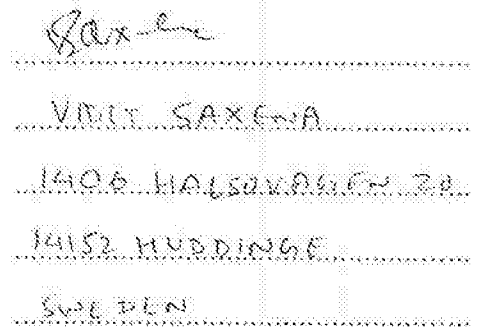 Saxena
VINIT SAXENA
1406 HALSOVAGEN 20
14152 HUDDINGE
SWEDEN